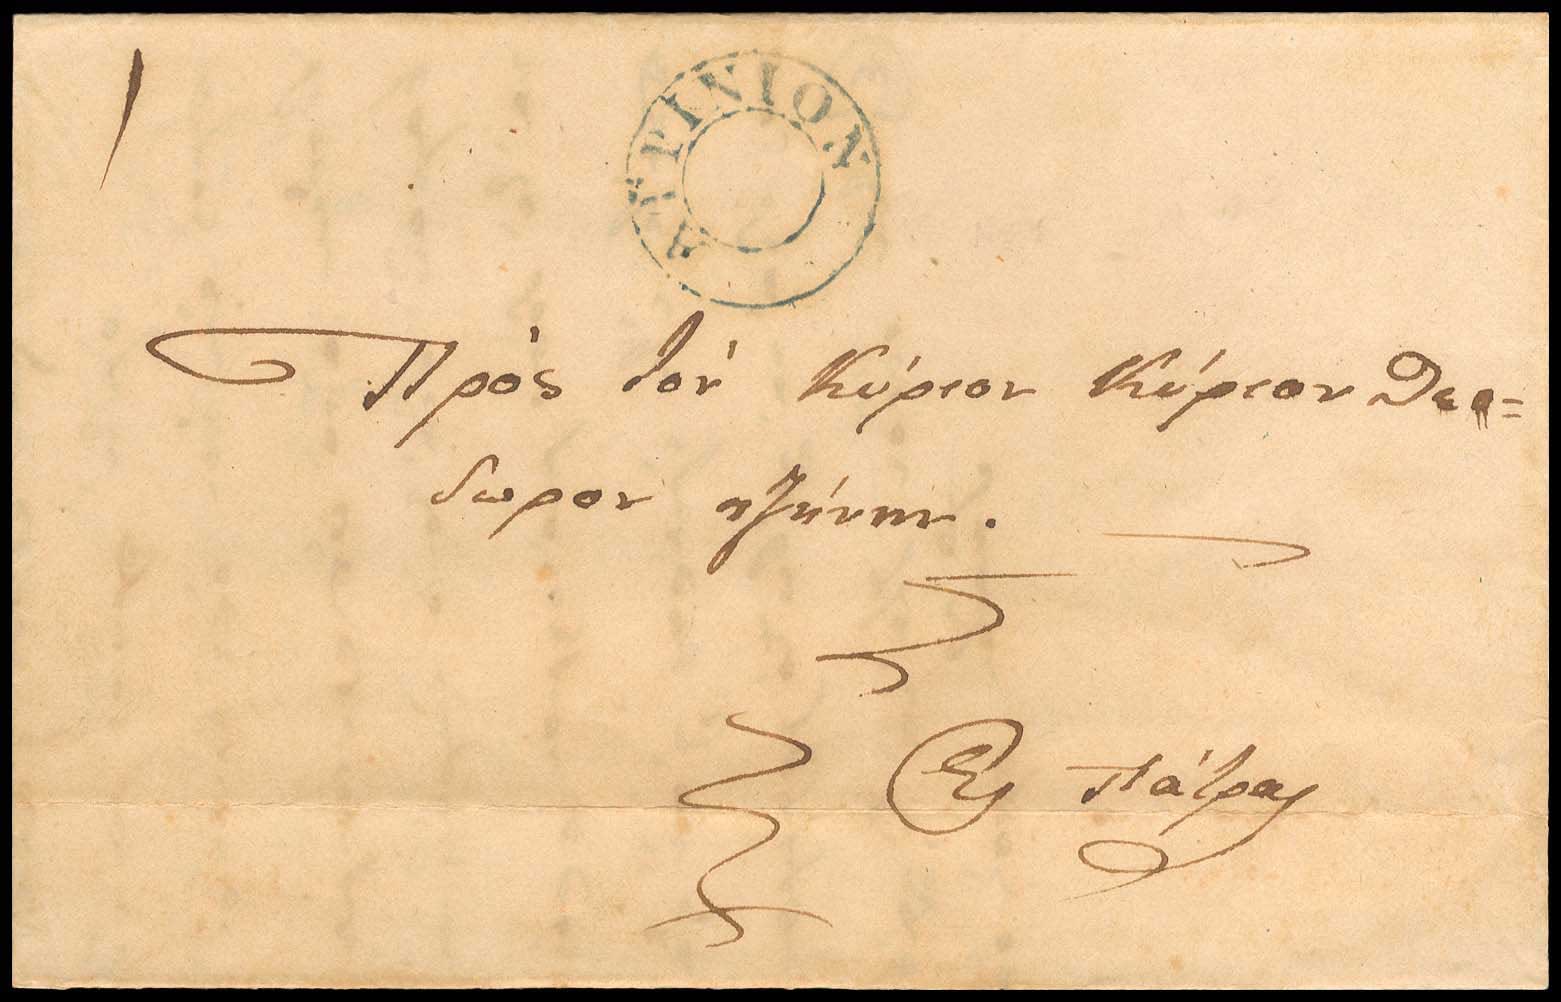 ΑΓΡΙΝΙΟΝ
Πρὸς τὸν Κύριον Κύριον Θεο=
δωρον
Εἰς Πάτρας